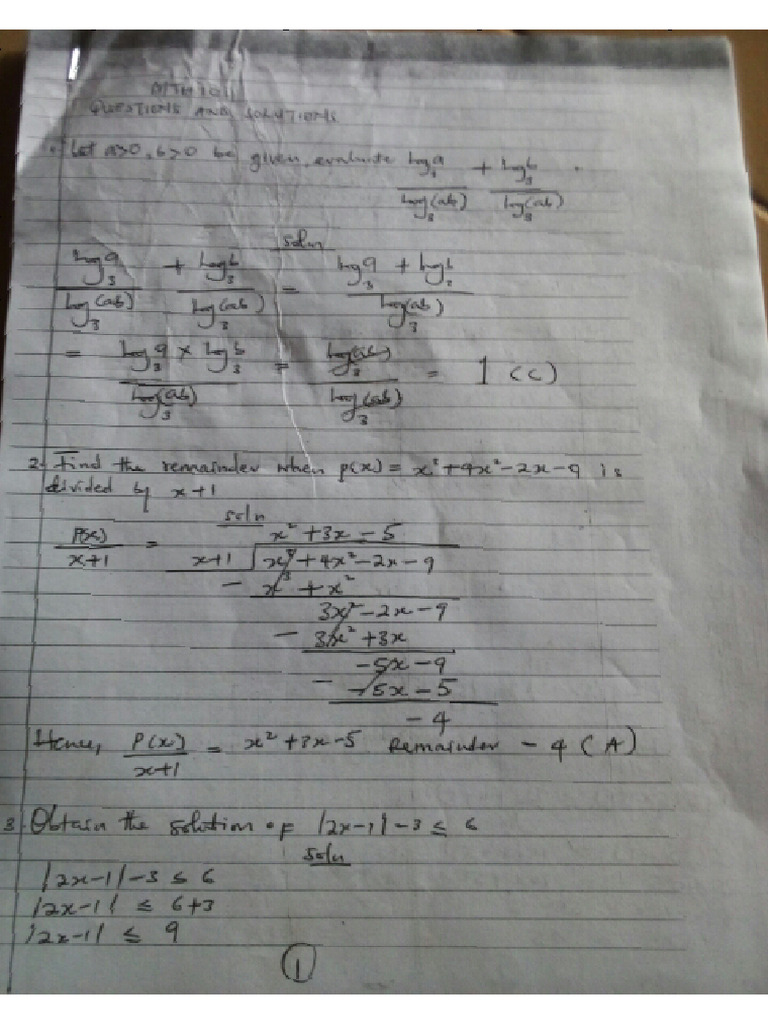 MTH 101
QUESTIONS AND SOLUTIONS
1. Let a>0, b>0 be given, evaluate log₃a/log₃(ab) + log₃b/log₃(ab).
soln
log₃a/log₃(ab) + log₃b/log₃(ab) = (log₃a + log₃b)/log₃(ab)
= (log₃a × log₃b)/log₃(ab) = log₃(ab)/log₃(ab) = 1 (C)
2. Find the remainder when p(x) = x³+4x²-2x-9 is
divided by x+1
soln
x² + 3x - 5
P(x)/(x+1) = x+1 √ x³ + 4x² - 2x - 9
- x³ + x²
3x² - 2x - 9
- 3x² + 3x
-5x - 9
- -5x - 5
-4
Hence, P(x)/(x+1) = x² + 3x - 5 Remainder - 4 (A)
3. Obtain the solution of |2x-1| - 3 ≤ 6
Soln
|2x-1| - 3 ≤ 6
|2x-1| ≤ 6+3
|2x-1| ≤ 9
1